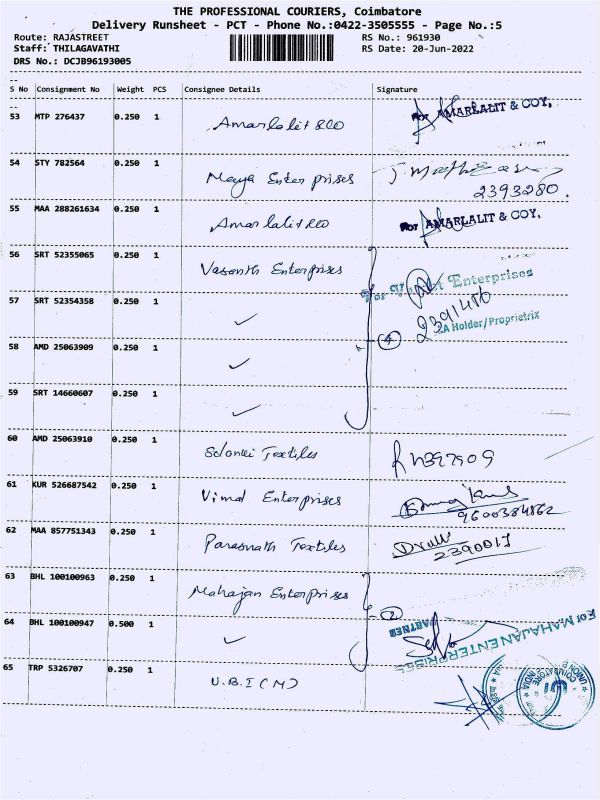 THE PROFESSIONAL COURIERS, Coimbatore
Delivery Runsheet - PCT - Phone No.:0422-3505555 - Page No.:5
Route: RAJASTREET RS No.: 961930
Staff: THILAGAVATHI RS Date: 20-Jun-2022
DRS No.: DCJB96193005
S No Consignment No Weight PCS Consignee Details Signature
53 MTP 276437 0.250 1 Amarlalit &co For AMARLALIT & COY,
54 STY 782564 0.250 1 Maya Enterprises
2393280.
55 MAA 288261634 0.250 1 Amarlalit &co For AMARLALIT & COY,
56 SRT 52355065 0.250 1 Vasanth Enterprises For Enterprises
57 SRT 52354358 0.250 1 ✓ 2391486
A Holder/Proprietrix
58 AMD 25063909 0.250 1 ✓ 4
59 SRT 14660607 0.250 1 ✓
60 AMD 25063910 0.250 1 Solanki Textiles
61 KUR 526687542 0.250 1 Vimal Enterprises
9600384862
62 MAA 857751343 0.250 1 Parasnath Textiles
2390017
63 BHL 100100963 0.250 1 Mahajan Enterprises 2
For MAHAJAN ENTERPRISES
PARTNER
64 BHL 100100947 0.500 1 ✓
65 TRP 5326707 0.250 1 U.B.I (M)
UNION B COIMBATORE INDIA